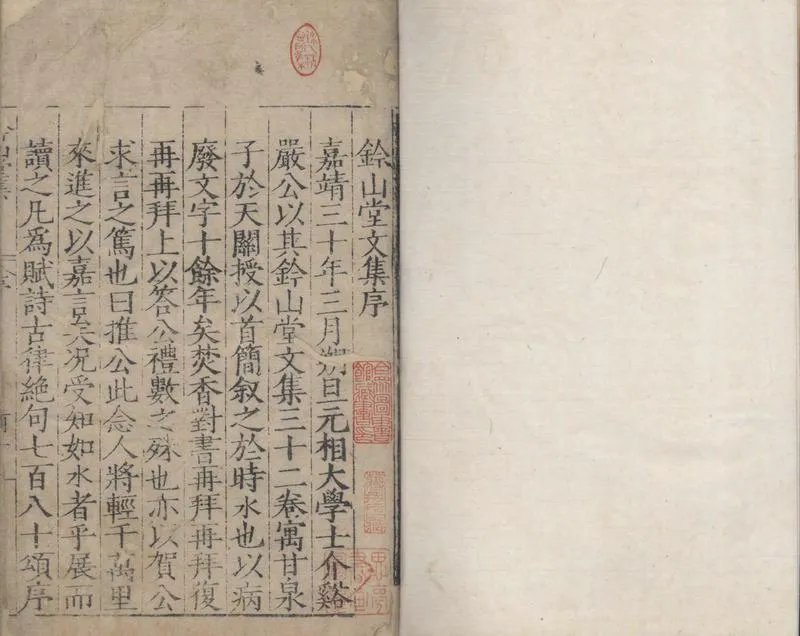 鈐山堂文集序
嘉靖三十年三月朔旦元相大學士介谿
嚴公以其鈐山堂文集三十二卷寓甘泉
子於天關授以首簡叙之於時水也以病
廢文字十餘年矣焚香對書再拜再拜復
再再拜上以答公禮數之殊也亦以賀公
求言之篤也曰推公此念人將輕千萬里
來進之以嘉言矣况受知如水者乎展而
讀之凡爲賦詩古律絶句七百八十頌序